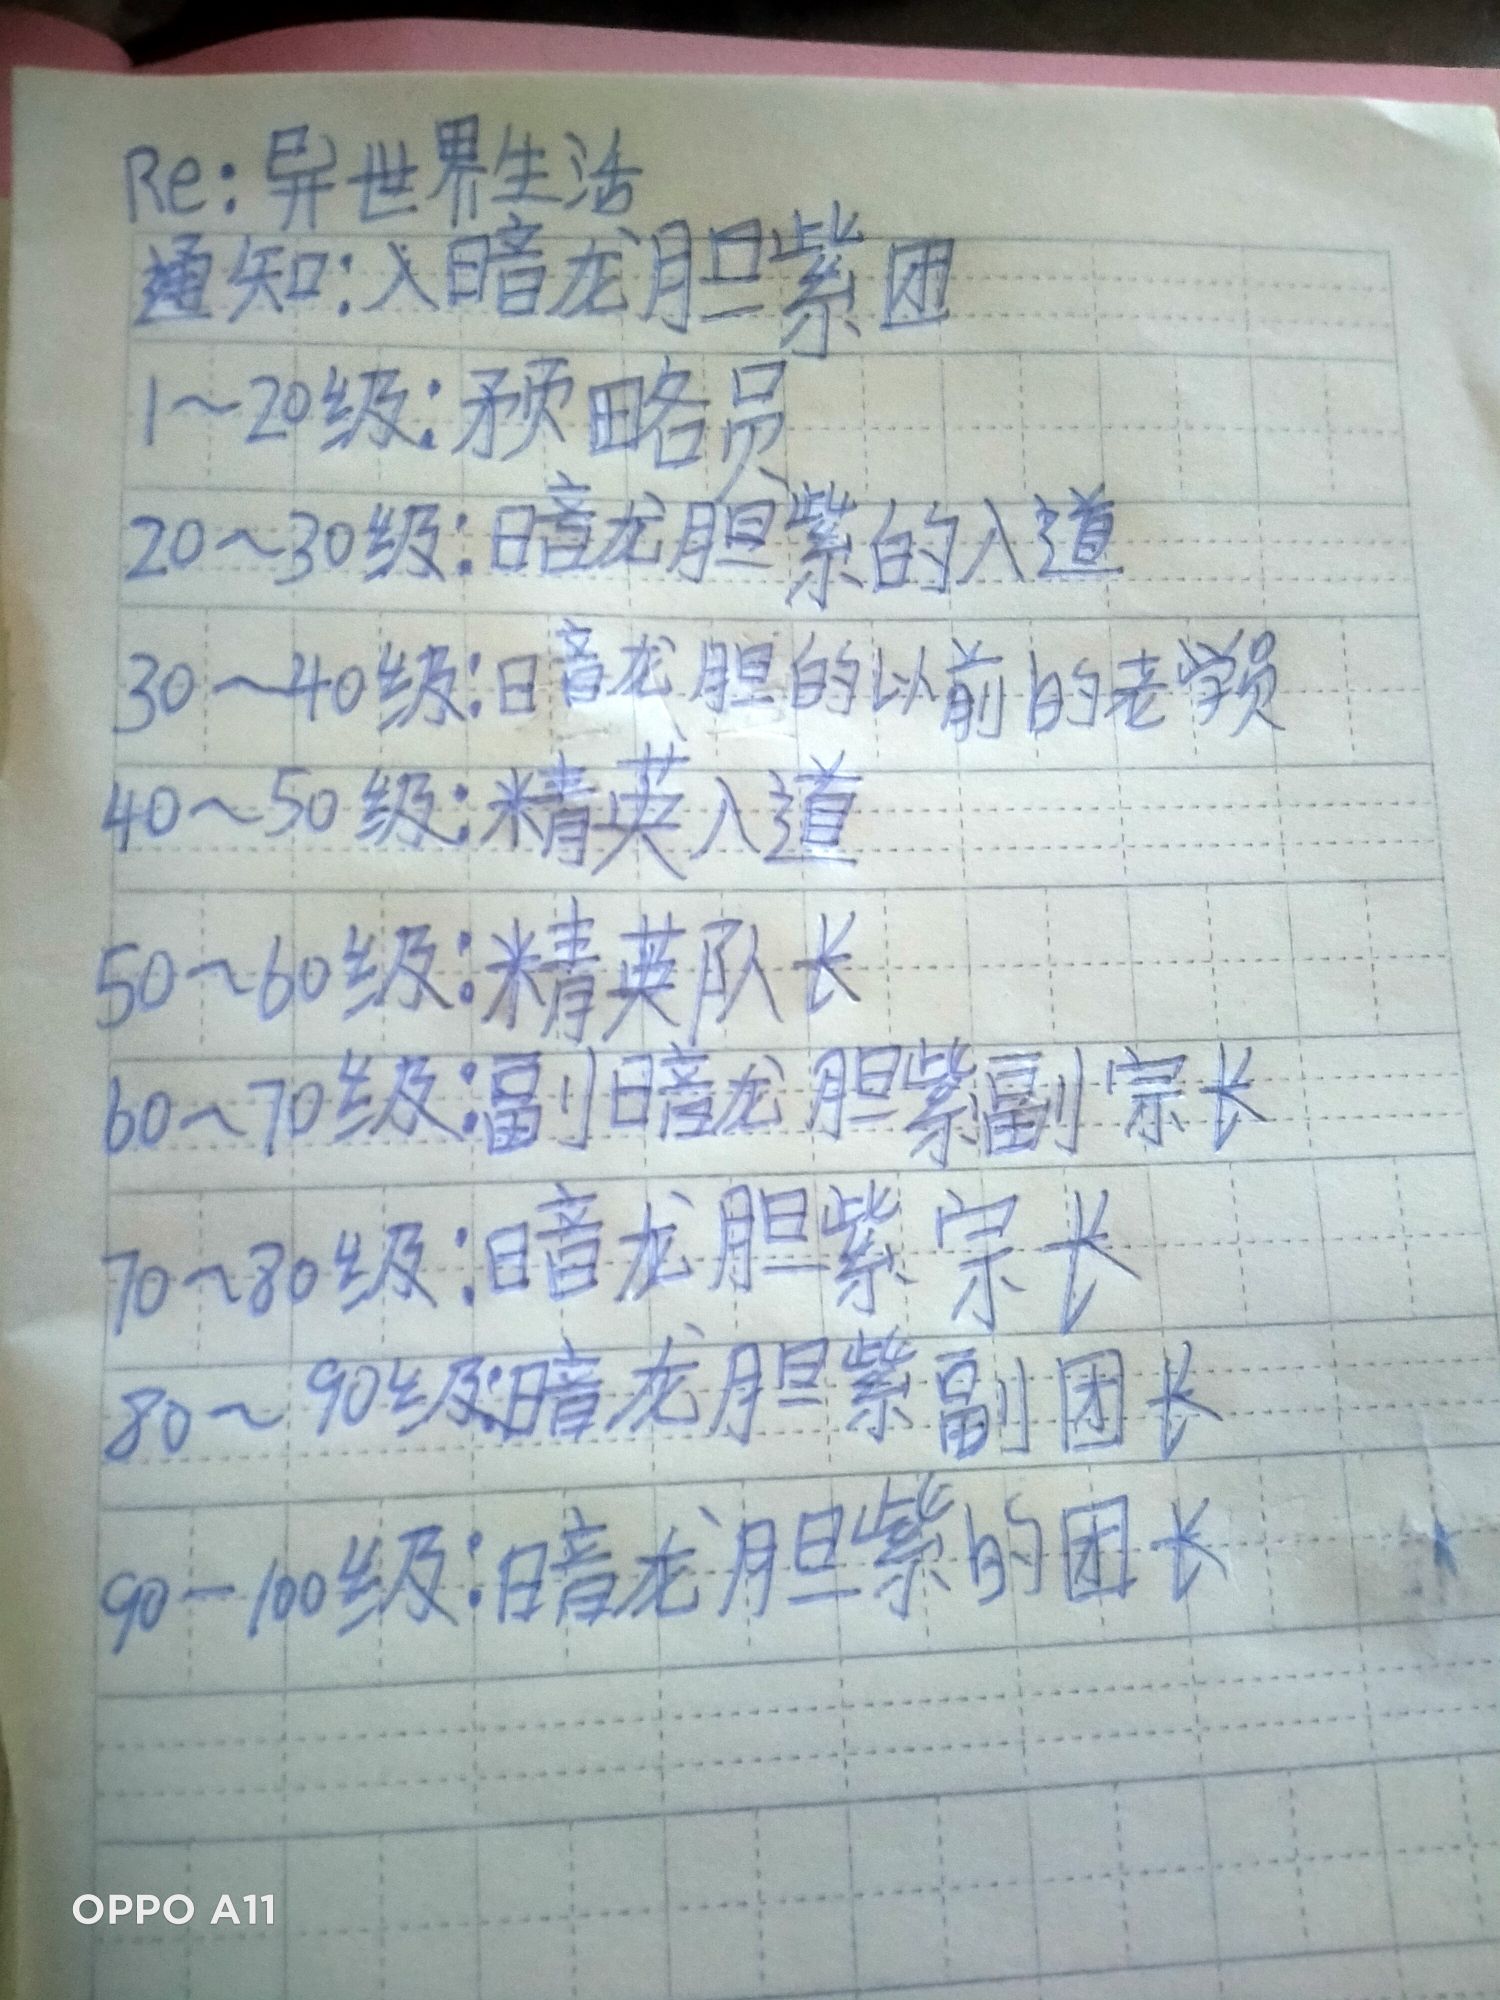 Re:异世界生活
通知:入暗龙胆紫团
1~20级:预略员
20~30级:暗龙胆紫的入道
30~40级:暗龙胆的以前的老学员
40~50级:精英入道
50~60级:精英队长
60~70级:副暗龙胆紫副宗长
70~80级:暗龙胆紫宗长
80~90级:暗龙胆紫副团长
90-100级:暗龙胆紫的团长
OPPO A11